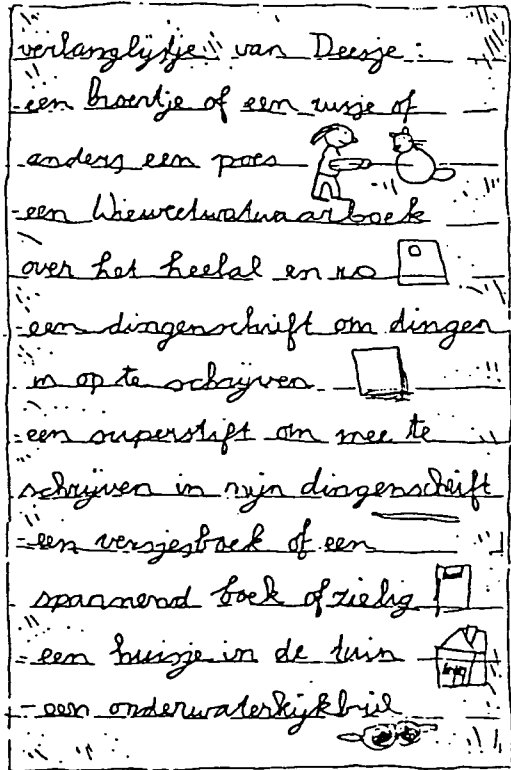 verlanglijstje van Deesje:
-een broertje of een zusje of
anders een poes
-een Wieweetwatwaarboek
over het heelal en zo
-een dingenschrift om dingen
in op te schrijven
-een superstift om mee te
schrijven in mijn dingenschrift
-een versjesboek of een
spannend boek of zielig
-een huisje in de tuin
-een onderwaterkijkbril